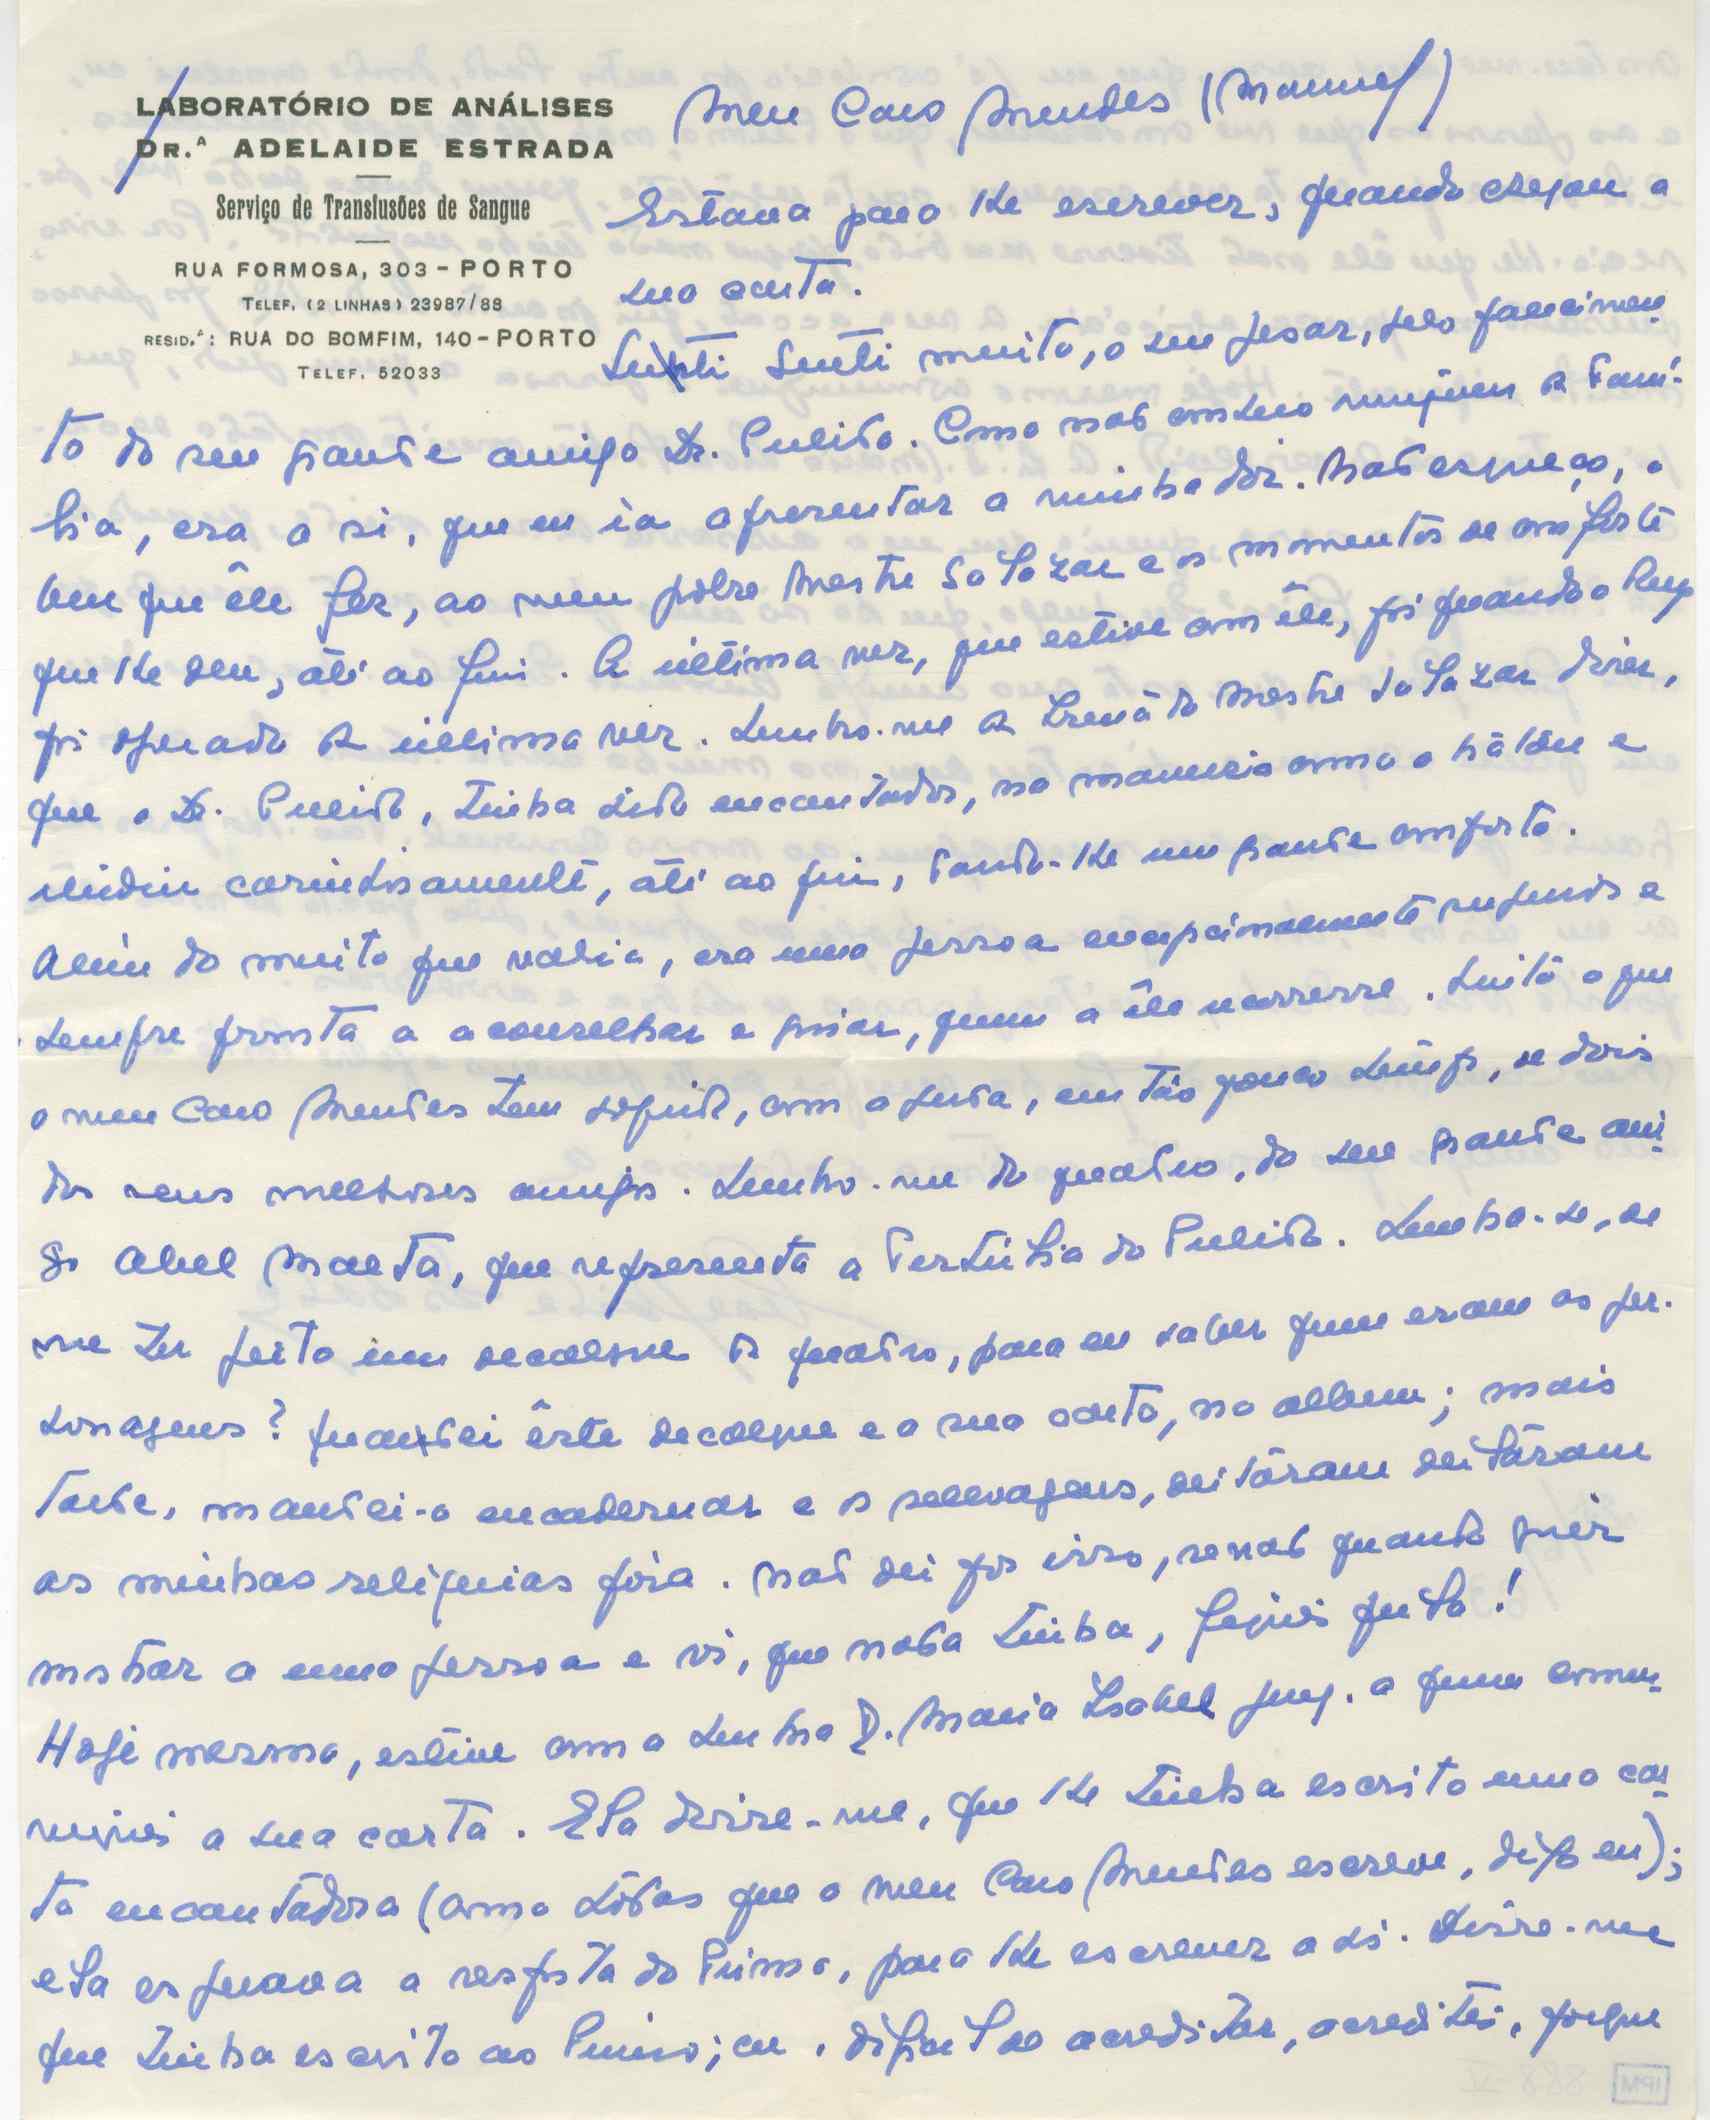 LABORATÓRIO DE ANÁLISES
DR.ª ADELAIDE ESTRADA
Serviço de Transfusões de Sangue
RUA FORMOSA, 303 - PORTO
TELEF. (2 LINHAS) 23987/88
RESID.ª: RUA DO BOMFIM, 140 - PORTO
TELEF. 52033
Meu Caro Mendes (Manuel)
Estava para lhe escrever, quando chegou a
sua carta.
Senti Senti muito, o seu pesar, pelo falecimen-
to do seu grande amigo Dr. Pulido. Como não conheço ninguem da Famí-
lia, era a si, que eu ia apresentar a minha dôr. Não esqueço, o
bem que êle fez, ao meu pobre Mestre Salazar e os momentos de conforto
que lhe deu, até ao fim. A ultima vez, que estive com êle, foi quando o Ruy
foi operado da ultima vez. Lembro-me da Irmã do Mestre Salazar dizer,
que o Dr. Pulido, tinha sido encantador, na maneira como o tratou e
iludiu carinhosamente, até ao fim, dando-lhe um grande conforto.
Além do muito que valia, era uma pessoa excepcionalmente
sempre pronta a aconselhar e guiar, quem a êle recorresse. Sinto o que
o meu Caro Mendes tem sofrido, com a perda, em tão pouco tempo, de dois
dos seus melhores amigos. Lembro-me do quadro, do seu grande ami-
go Abel Manta, que representa a Tertúlia do Pulido. Lembra-se, de
me ter feito um decalque do quadro, para eu saber quem eram as per-
sonagens? Guardei êste decalque e a sua carta, no album; mais
tarde, mandei-o encadernar e os selvagens, deitáram deitáram
as minhas reliquias fóra. Não dei por isso, senão quando quiz
mostrar a uma pessoa e vi, que nada tinha, fiquei fula!
Hoje mesmo, estive com a Senhora D. Maria Isabel a quem comu-
niquei a sua carta. Ela disse-me, que lhe tinha escrito uma car-
ta encantadora (como todas que o meu Caro Mendes escreve, digo eu);
ela esperava a resposta do Primo, para lhe escrever a si. Disse-me
que tinha escrito ao Primo; eu, acreditar, acreditei, porque
IPM